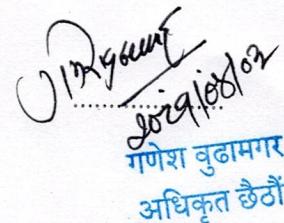 २०८१/०४/०२
गणेश वुढामगर
अधिकृत छैठौं